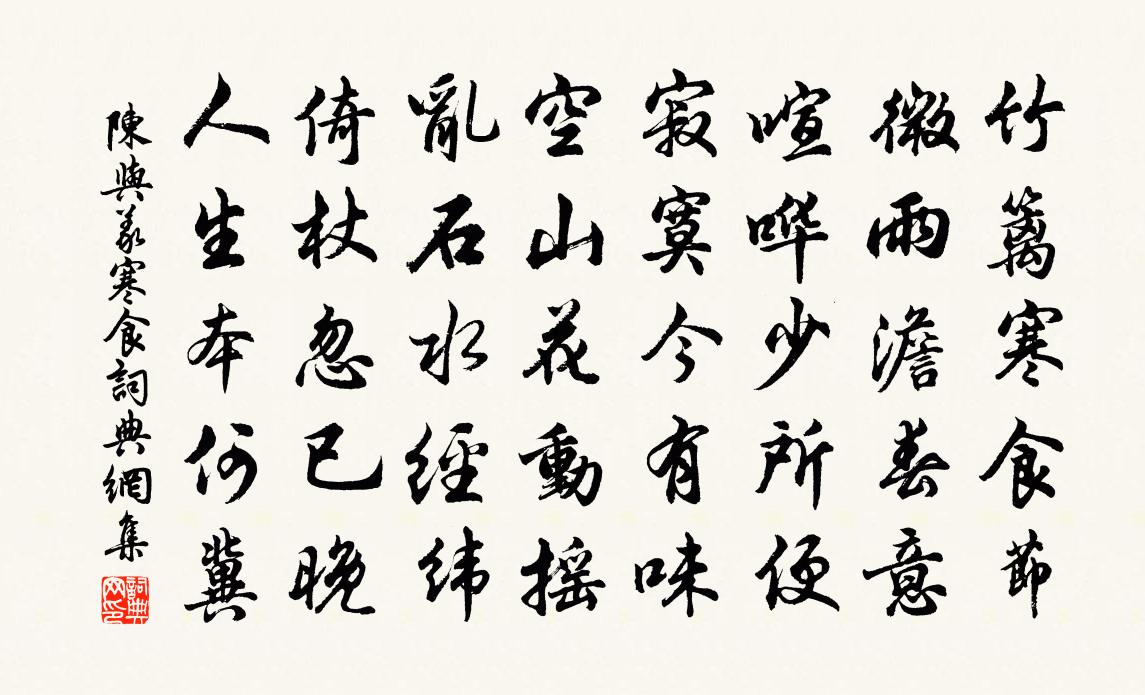 竹籬寒食節
微雨澹春意
喧哗少所便
寂寞今有味
空山花動搖
亂石水經緯
倚杖忽已晚
人生本何冀
陳與義寒食詞典網集
詞典网印